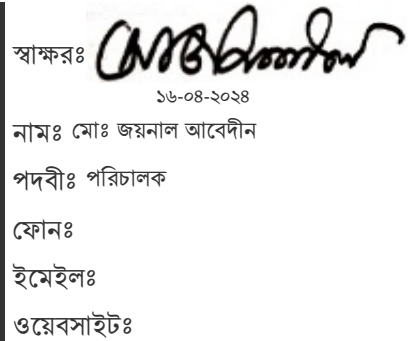 স্বাক্ষরঃ
১৬-০৪-২০২৪
নামঃ মোঃ জয়নাল আবেদীন
পদবীঃ পরিচালক
ফোনঃ
ইমেইলঃ
ওয়েবসাইটঃ